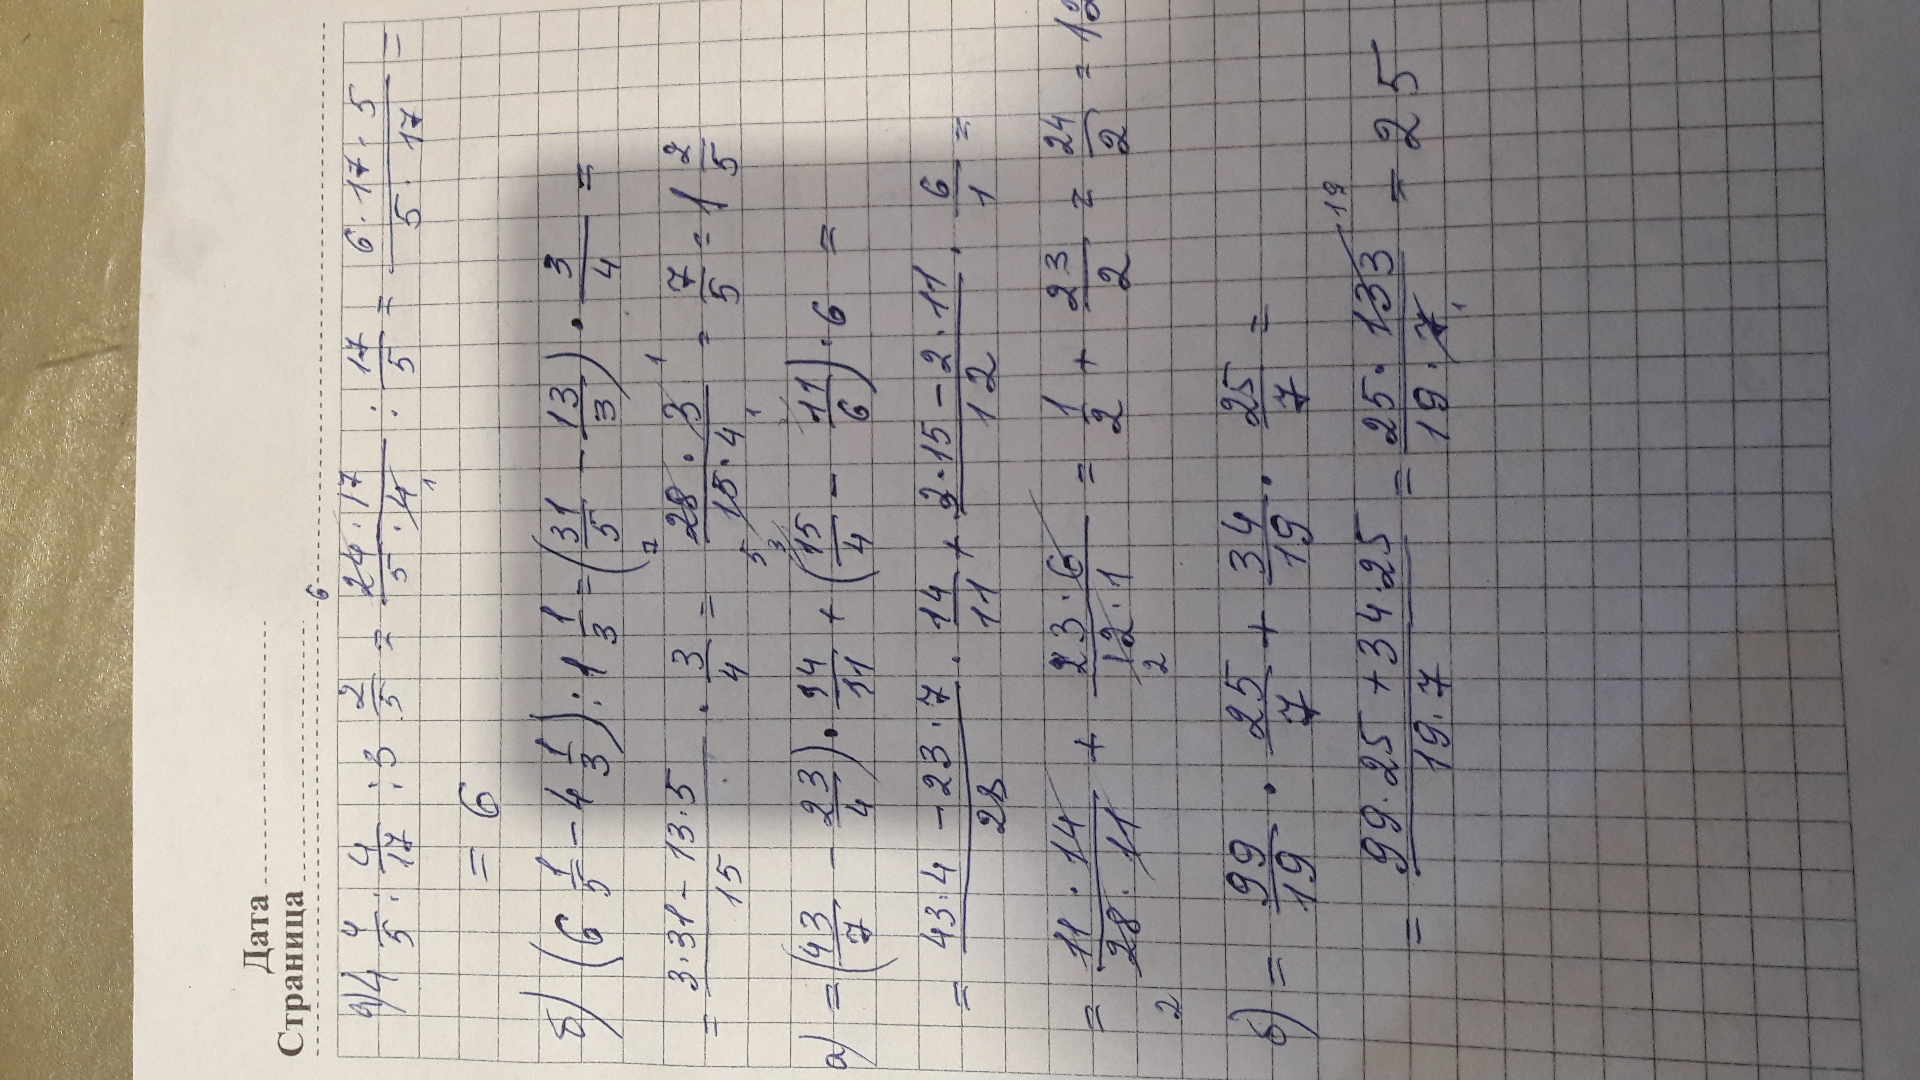 Дата
Страница
а) 4 4/5 : 4/17 : 3 2/5 = 24 · 17 / 5 · 4 : 17/5 = 6 · 17 · 5 / 5 · 17 =
= 6
б) (6 1/5 - 4 1/3) : 1 1/3 = (31/5 - 13/3) · 3/4 =
= 3·31 - 13·5 / 15 · 3/4 = 28 · 3 / 15 · 4 = 7/5 = 1 2/5
а) = (43/7 - 23/4) · 14/11 + (15/4 - 11/6) · 6 =
= 43·4 - 23·7 / 28 · 14/11 + 3·15 - 2·11 / 12 · 6/1 =
= 11 · 14 / 28 · 11 + 23 · 6 / 12 · 1 = 1/2 + 23/2 = 24/2 = 12
б) = 99/19 · 25/7 + 34/19 · 25/7 =
= 99·25 + 34·25 / 19·7 = 25 · 133 / 19 · 7 = 25